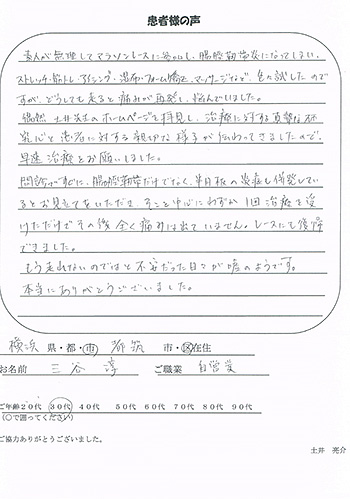 患者様の声
素人が無理してマラソンレースに参加し、腸脛靭帯炎になってしまい、
ストレッチ・筋トレ・アイシング・湿布・フォーム矯正、マッサージなど、色々試したので
すが、どうしても走ると痛みが再発し、悩んでいました。
偶然、土井先生のホームページを拝見し、治療に対する真摯な研
究心と患者に対する親切な様子が伝わってきましたので、
早速治療をお願いしました。
問診ですぐに、腸脛靭帯だけでなく、半月板の炎症も併発してい
るとお見立てをいただき、そこを中心にわずか1回治療を受
けただけでその後全く痛みは出ていません。レースにも復帰
できました。
もう走れないのではと不安だった日々が嘘のようです。
本当にありがとうございました。
横浜 県・都・市 都筑 市・区在住
お名前 三谷 淳 ご職業 自営業
ご年齢20代 30代 40代 50代 60代 70代 80代 90代
(○で囲ってください)
ご協力ありがとうございました。
土井 亮介